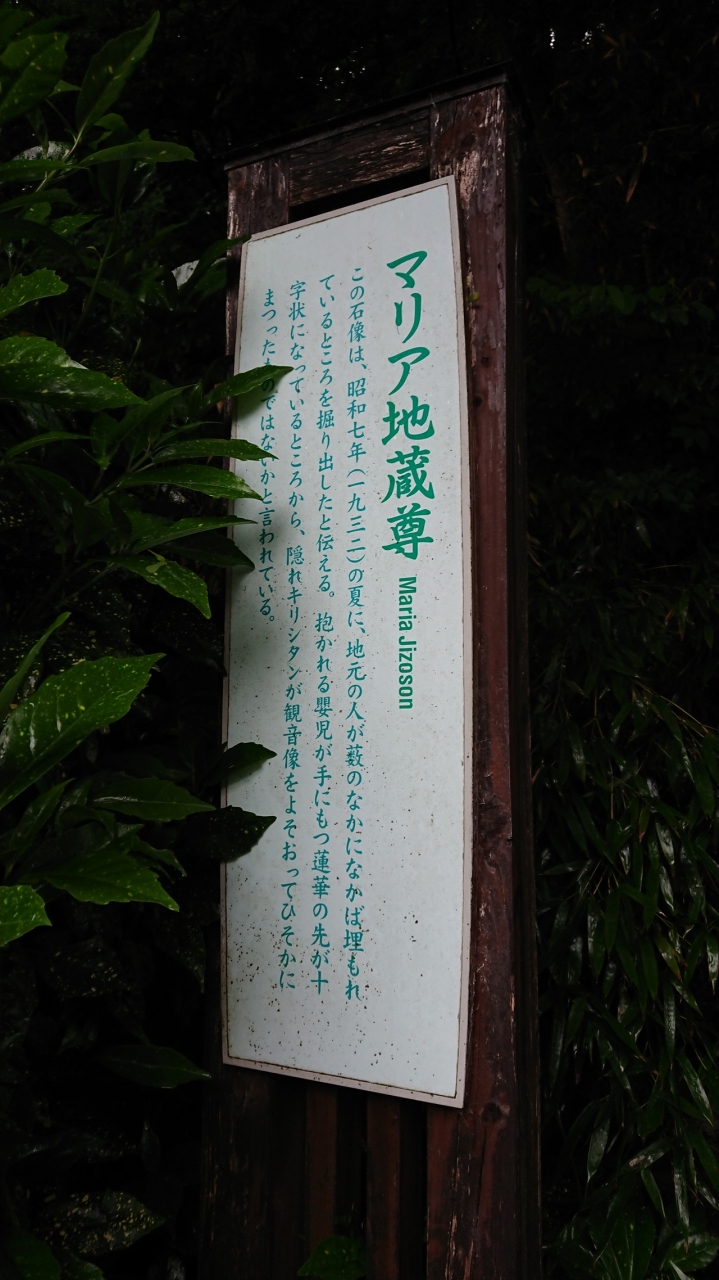 マリア地蔵尊 Maria Jizoson
この石像は、昭和七年(一九三二)の夏に、地元の人が薮のなかになかば埋もれ
ているところを掘り出したと伝える。抱かれる嬰児が手にもつ蓮華の先が十
字状になっているところから、隠れキリシタンが観音像をよそおってひそかに
まつったものではないかと言われている。